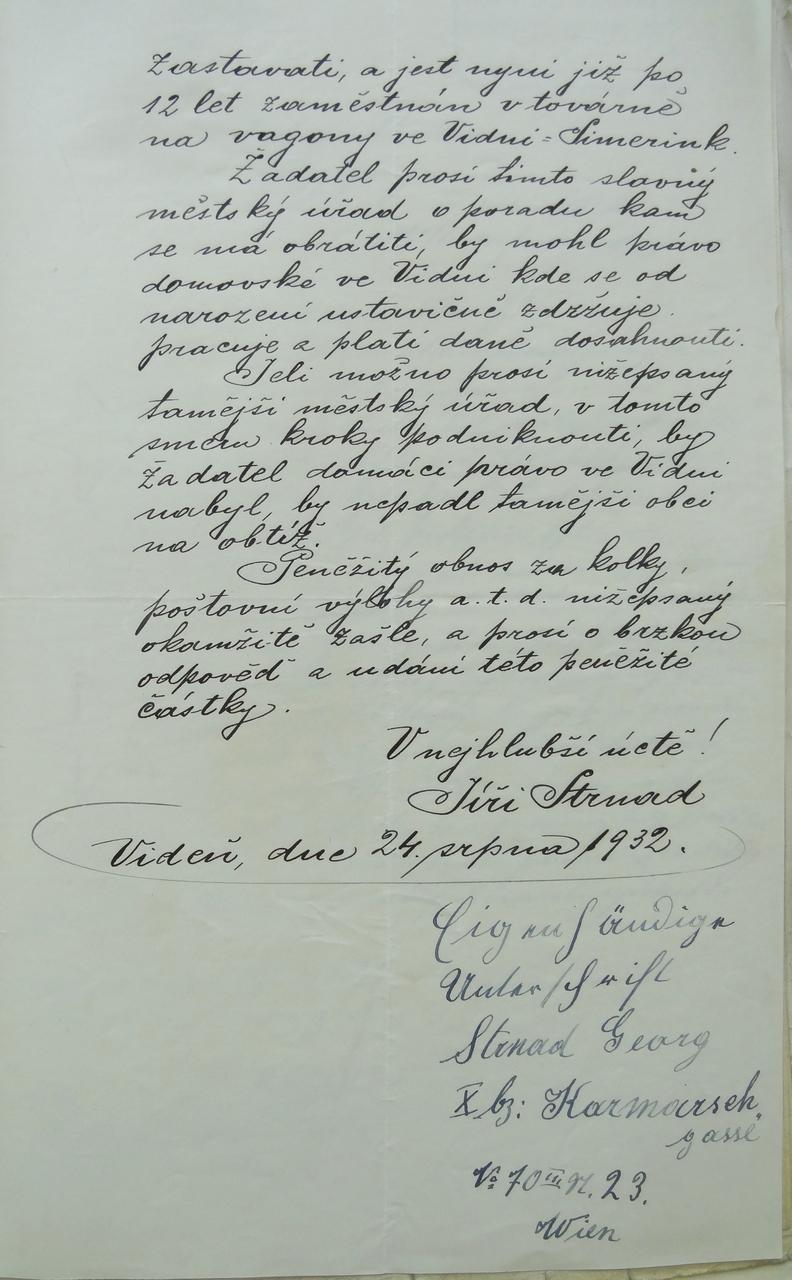 zastavati, a jest nyni již po
12 let zaměstnán v továrně
na vagony ve Vidni=Simerink.
Žadatel prosí timto slavný
městský úřad o poradu kam
se má obrátiti, by mohl právo
domovské ve Vidni kde se od
narození ustavičně zdržuje.
pracuje a platí daně dosahnouti.
Jeli možno prosí nižepsaný
tamější městský úřad, v tomto
směru kroky podniknouti, by
žadatel domácí právo ve Vidni
nabyl, by nepadl tamější obci
na obtíž.
Peněžitý obnos za kolky,
poštovní výlohy a.t.d. nižepsaný
okamžitě zašle, a prosí o brzkou
odpověď a udání této peněžité
částky.
V nejhlubší úctě!
Jiří Strnad
Videň, dne 24. srpna 1932.
Eigenhändige
Unterschrift
Strnad Georg
X bz: Karmarsch„
gasse
No 70 III N. 23.
Wien